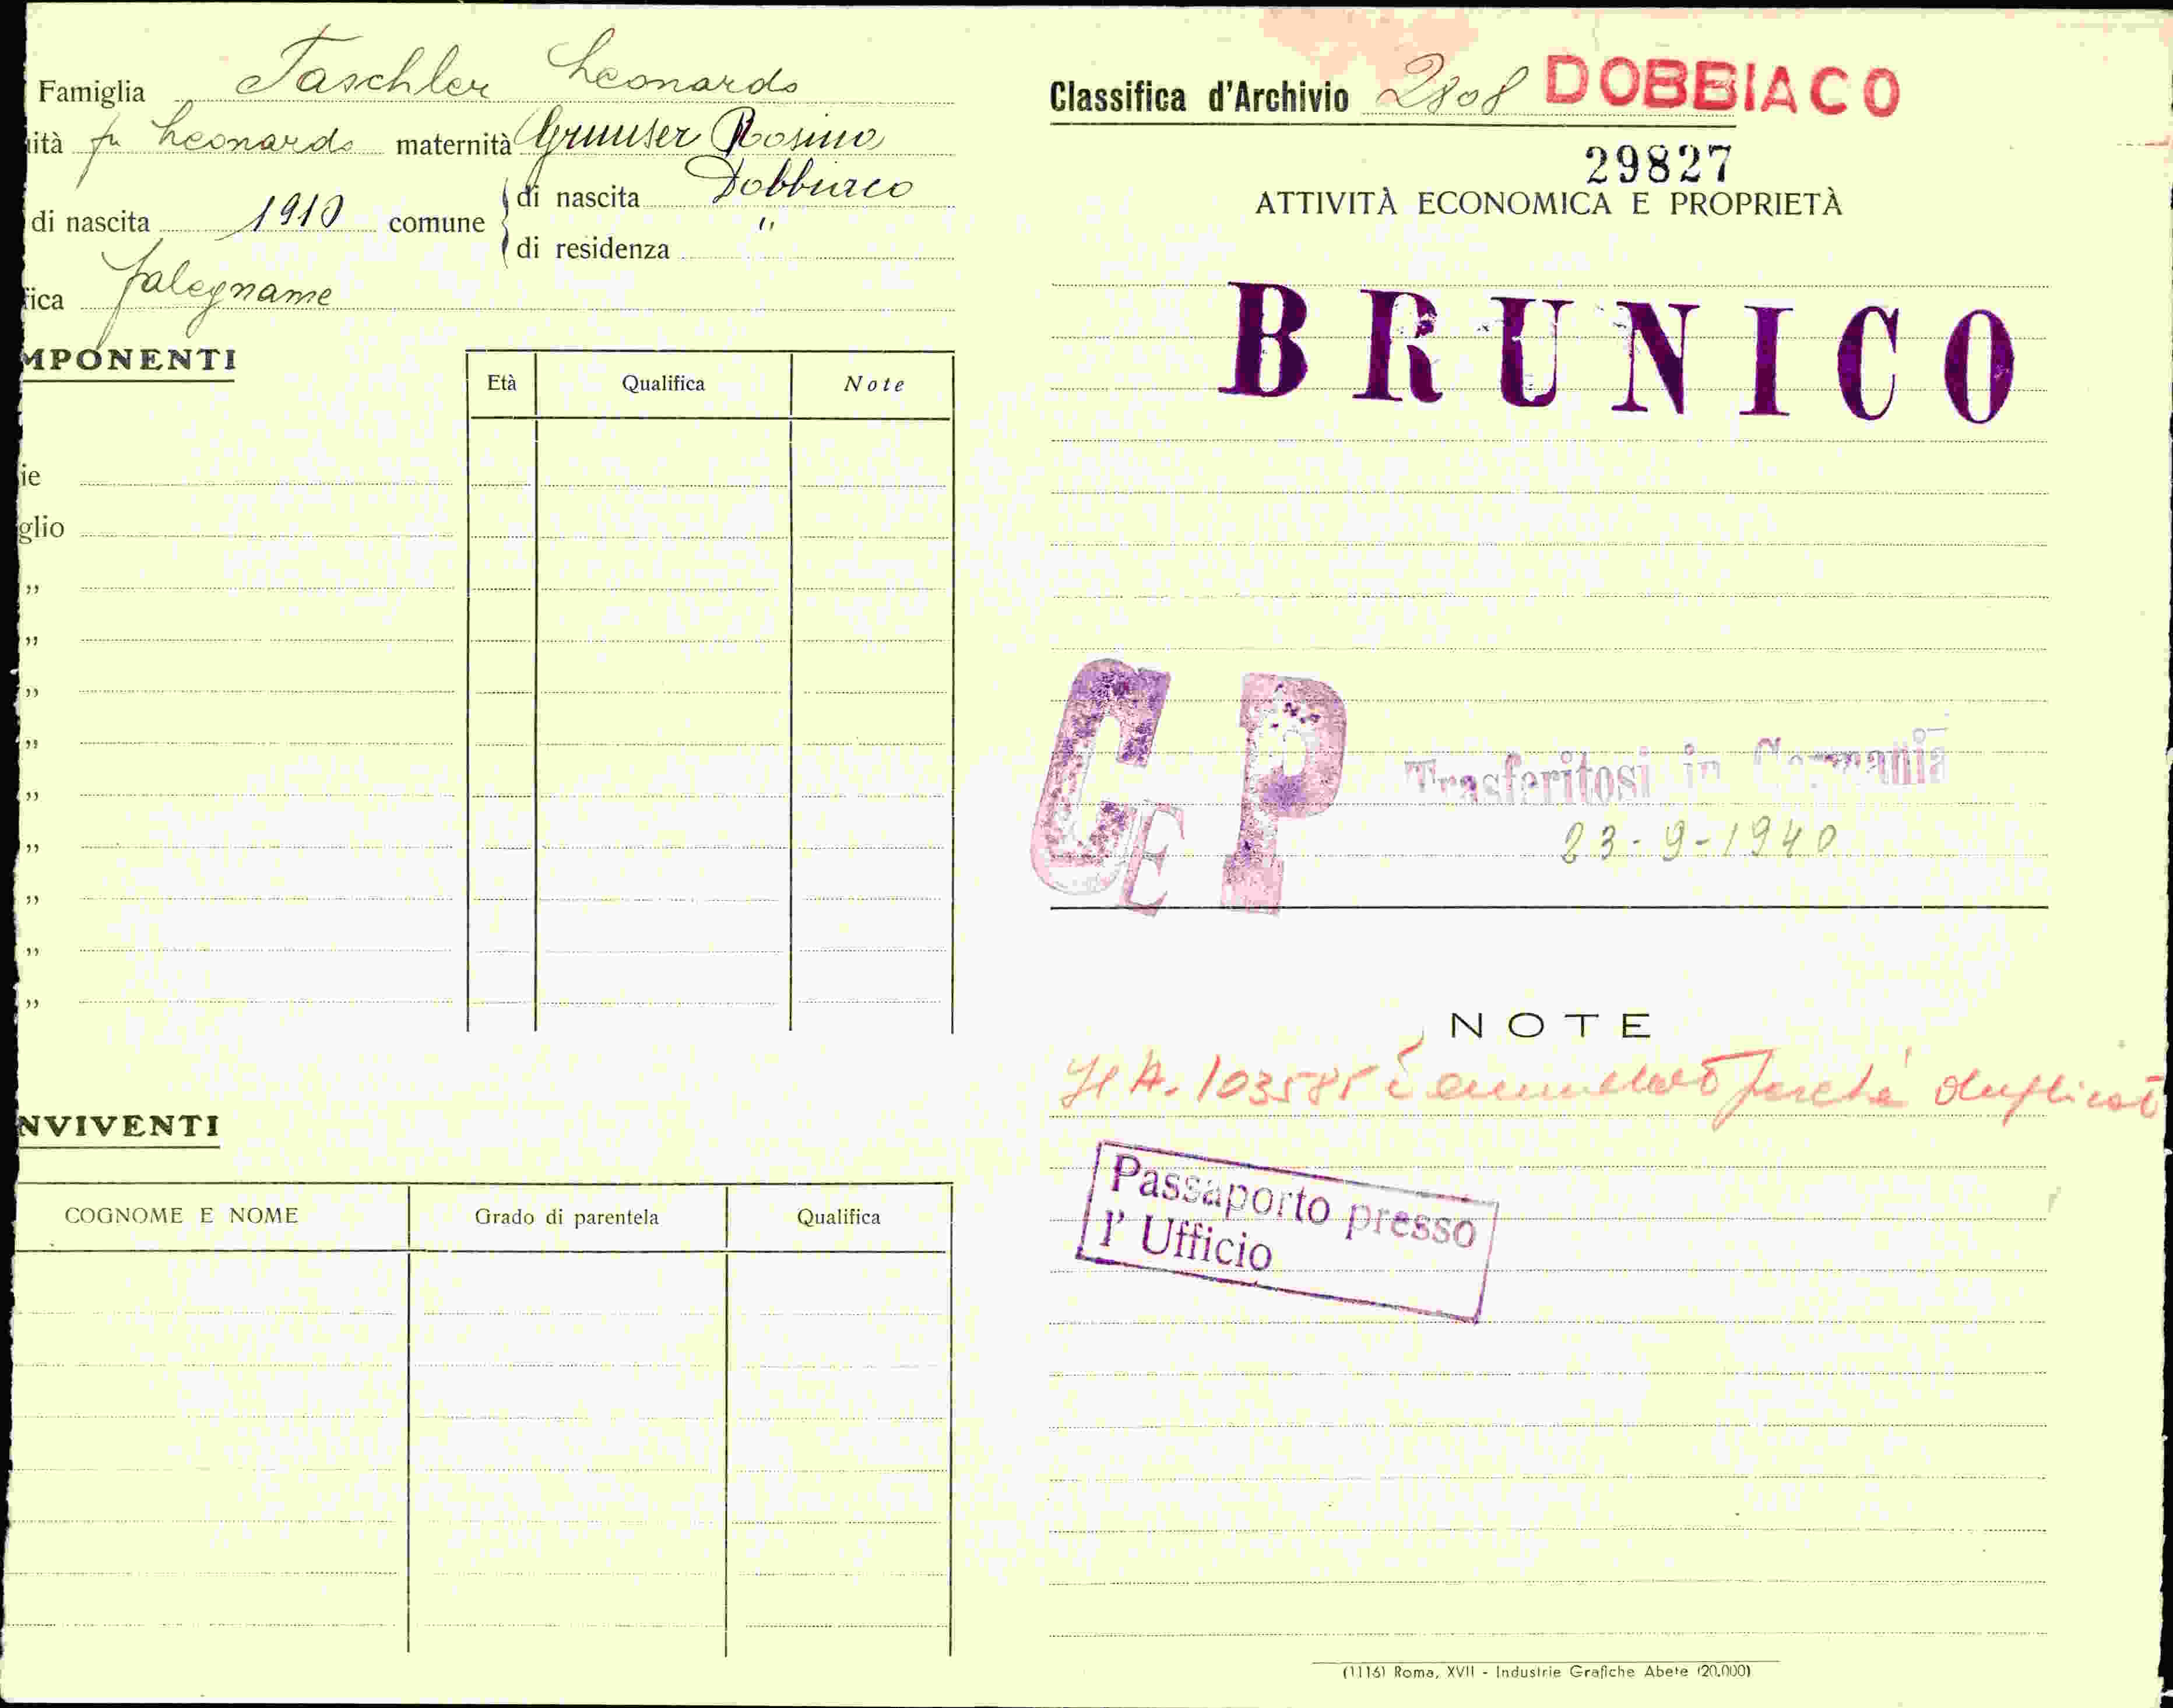 Famiglia Taschler Leonardo
ità fu Leonardo maternità Rosina
di nascita 1910 comune di nascita Dobbiaco
di residenza "
ica falegname
MPONENTI
Età Qualifica Note
ie
glio
"
"
"
"
"
"
"
"
"
NVIVENTI
COGNOME E NOME Grado di parentela Qualifica
Classifica d'Archivio 2808 DOBBIACO
29827
ATTIVITÀ ECONOMICA E PROPRIETÀ
BRUNICO
GEP
Trasferitosi in Germania
23-9-1940
NOTE
Il A. 103585 è annullato perché duplicato
Passaporto presso
l' Ufficio
(1116) Roma, XVII - Industrie Grafiche Abete (20.000)